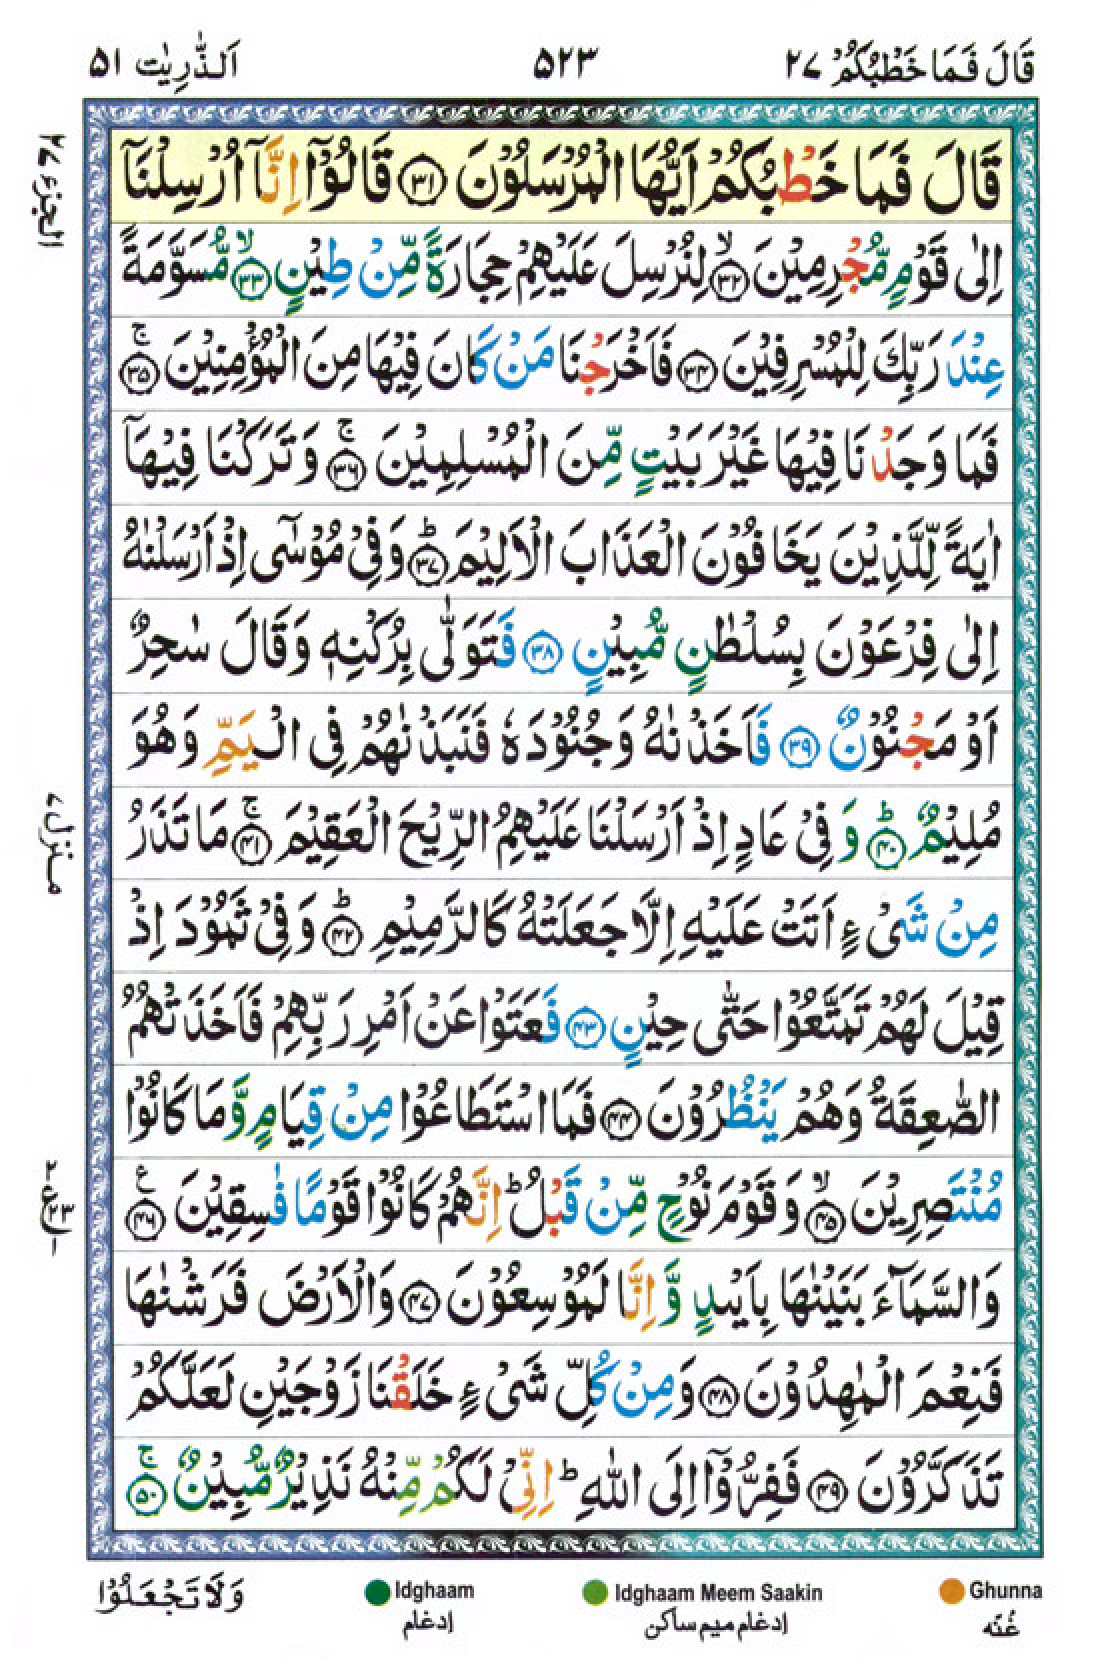 قَالَ فَمَا خَطْبُكُمْ ٢٧ ٥٢٣ اَلذّٰرِيٰت ٥١
قَالَ فَمَا خَطْبُكُمْ اَيُّهَا الْمُرْسَلُوْنَ ﴿٣١﴾ قَالُوْۤا اِنَّاۤ اُرْسِلْنَاۤ
اِلٰى قَوْمٍ مُّجْرِمِيْنَ ﴿٣٢﴾ۙ لِنُرْسِلَ عَلَيْهِمْ حِجَارَةً مِّنْ طِيْنٍ ﴿٣٣﴾ۙ مُّسَوَّمَةً
عِنْدَ رَبِّكَ لِلْمُسْرِفِيْنَ ﴿٣٤﴾ فَاَخْرَجْنَا مَنْ كَانَ فِيْهَا مِنَ الْمُؤْمِنِيْنَ ﴿٣٥﴾ۚ
فَمَا وَجَدْنَا فِيْهَا غَيْرَ بَيْتٍ مِّنَ الْمُسْلِمِيْنَ ﴿٣٦﴾ۚ وَتَرَكْنَا فِيْهَاۤ
اٰيَةً لِّلَّذِيْنَ يَخَافُوْنَ الْعَذَابَ الْاَلِيْمَ ﴿٣٧﴾ؕ وَفِيْ مُوْسٰۤى اِذْ اَرْسَلْنٰهُ
اِلٰى فِرْعَوْنَ بِسُلْطٰنٍ مُّبِيْنٍ ﴿٣٨﴾ فَتَوَلّٰى بِرُكْنِهٖ وَقَالَ سٰحِرٌ
اَوْ مَجْنُوْنٌ ﴿٣٩﴾ فَاَخَذْنٰهُ وَجُنُوْدَهٗ فَنَبَذْنٰهُمْ فِى الْيَمِّ وَهُوَ
مُلِيْمٌ ﴿٤٠﴾ؕ وَفِيْ عَادٍ اِذْ اَرْسَلْنَا عَلَيْهِمُ الرِّيْحَ الْعَقِيْمَ ﴿٤١﴾ۚ مَا تَذَرُ
مِنْ شَيْءٍ اَتَتْ عَلَيْهِ اِلَّا جَعَلَتْهُ كَالرَّمِيْمِ ﴿٤٢﴾ؕ وَفِيْ ثَمُوْدَ اِذْ
قِيْلَ لَهُمْ تَمَتَّعُوْا حَتّٰى حِيْنٍ ﴿٤٣﴾ فَعَتَوْا عَنْ اَمْرِ رَبِّهِمْ فَاَخَذَتْهُمُ
الصّٰعِقَةُ وَهُمْ يَنْظُرُوْنَ ﴿٤٤﴾ فَمَا اسْتَطَاعُوْا مِنْ قِيَامٍ وَّمَا كَانُوْا
مُنْتَصِرِيْنَ ﴿٤٥﴾ۙ وَقَوْمَ نُوْحٍ مِّنْ قَبْلُ ؕ اِنَّهُمْ كَانُوْا قَوْمًا فٰسِقِيْنَ ﴿٤٦﴾ع
وَالسَّمَآءَ بَنَيْنٰهَا بِاَيْىدٍ وَّاِنَّا لَمُوْسِعُوْنَ ﴿٤٧﴾ وَالْاَرْضَ فَرَشْنٰهَا
فَنِعْمَ الْمٰهِدُوْنَ ﴿٤٨﴾ وَمِنْ كُلِّ شَيْءٍ خَلَقْنَا زَوْجَيْنِ لَعَلَّكُمْ
تَذَكَّرُوْنَ ﴿٤٩﴾ فَفِرُّوْۤا اِلَى اللّٰهِ ؕ اِنِّيْ لَكُمْ مِّنْهُ نَذِيْرٌ مُّبِيْنٌ ﴿٥٠﴾ۚ
الجزء ٢٧
منزل ٧
٢
ع ٢٣
١
Ghunna Idghaam Meem Saakin Idghaam وَلَا تَجْعَلُوْا
غُنّه ادغام میم ساکن ادغام